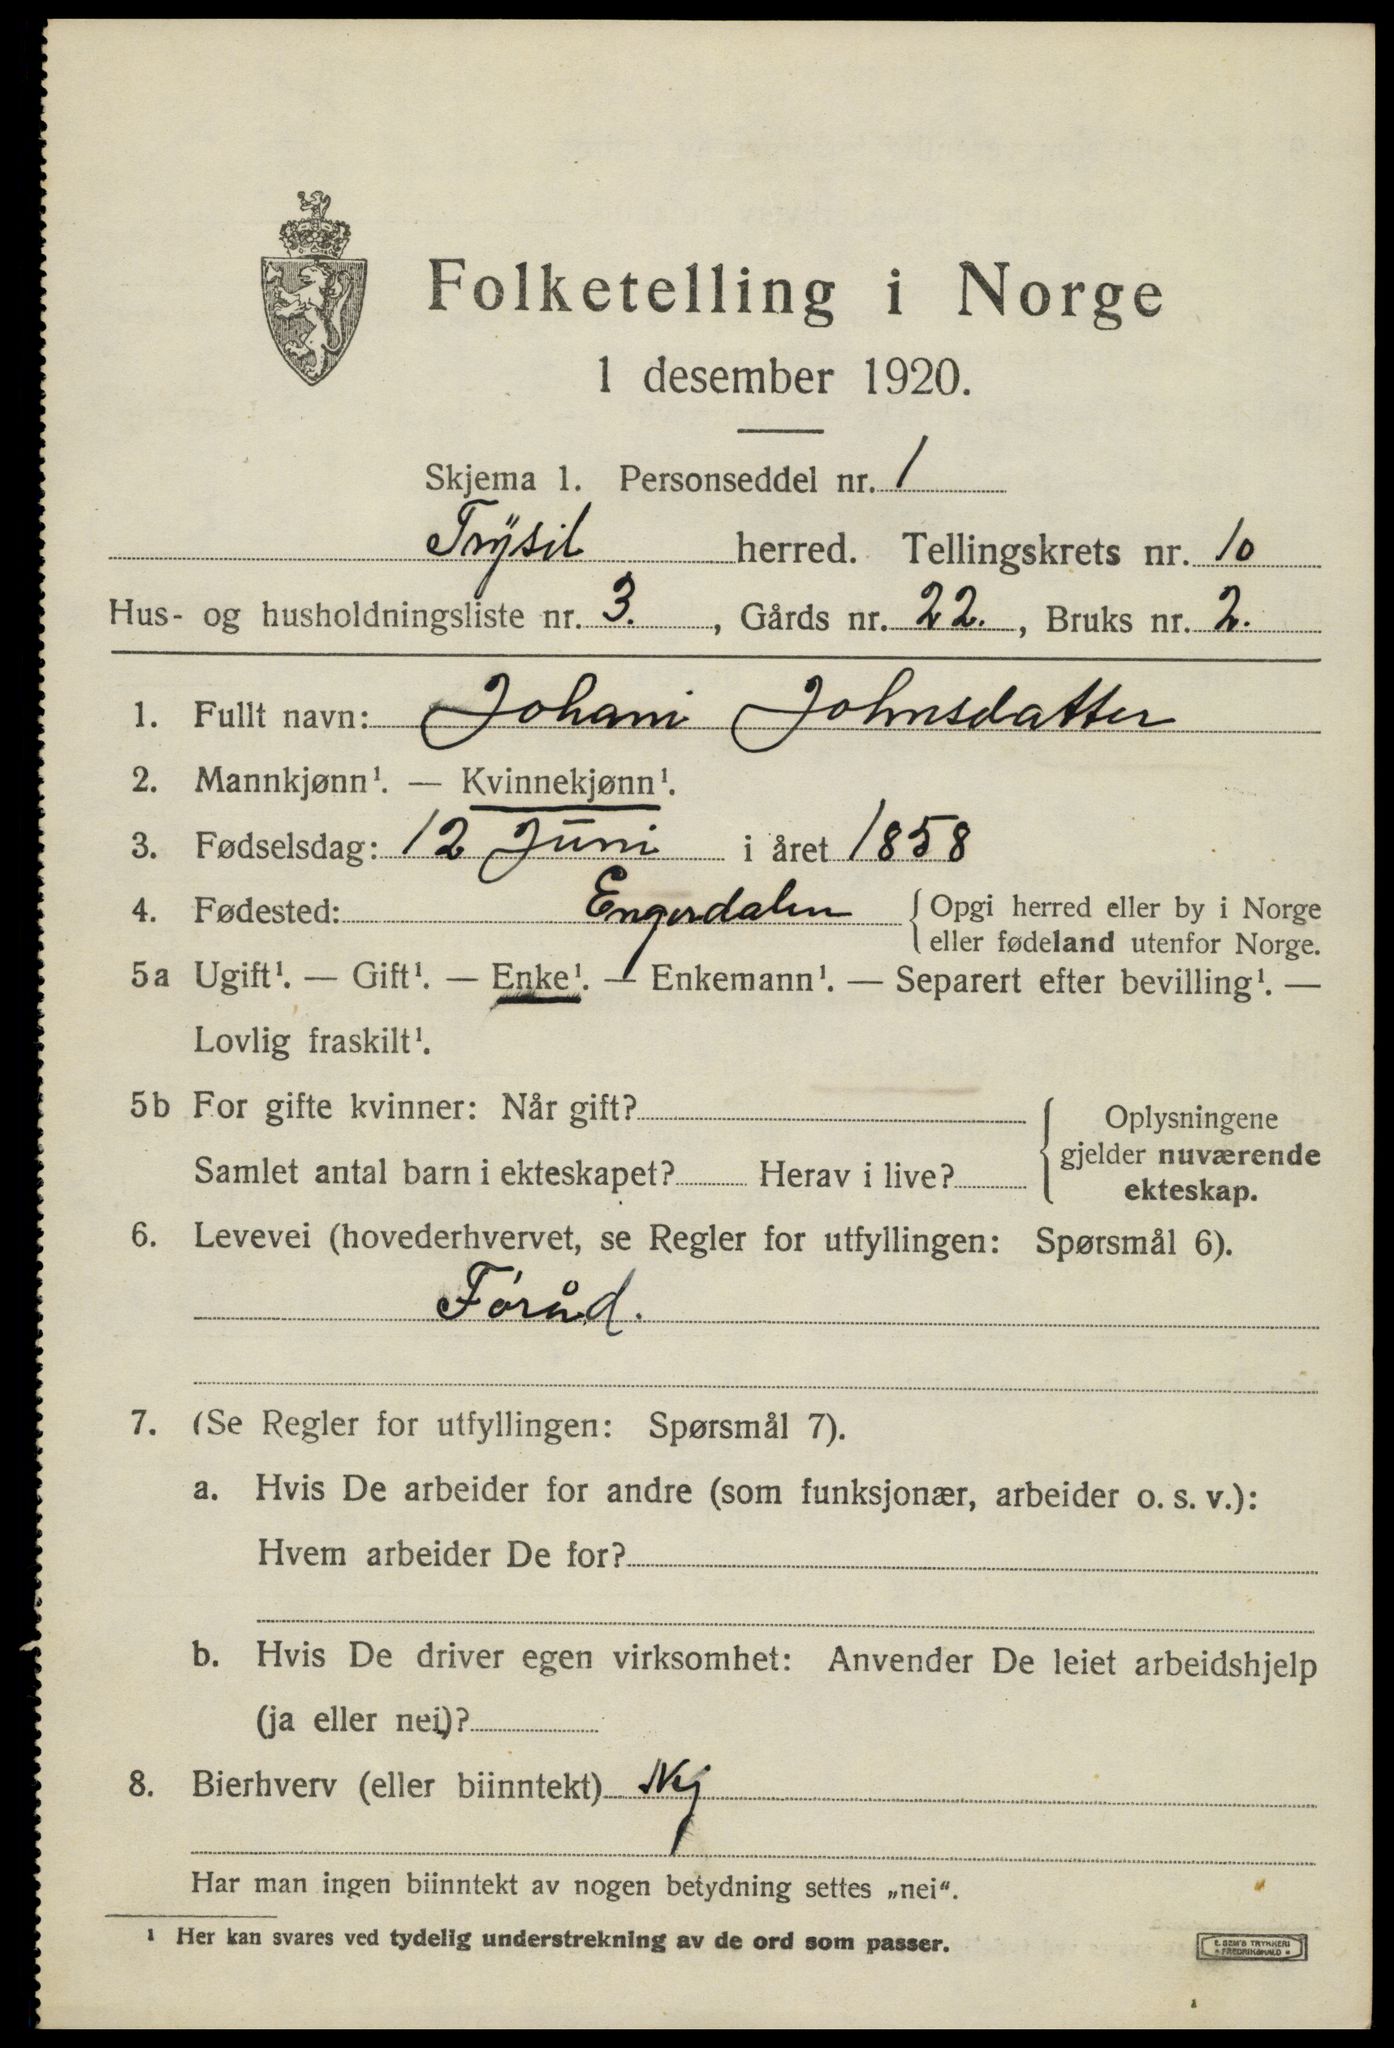 Folketelling i Norge
1 desember 1920.
Skjema 1. Personseddel nr. 1
Trÿsil herred. Tellingskrets nr. 10
Hus- og husholdningsliste nr. 3. , Gårds nr. 22. , Bruks nr. 2.
1. Fullt navn: Johani Johnsdatter
2. Mannkjønn¹. — Kvinnekjønn¹.
3. Fødselsdag: 12 Juni i året 1858
4. Fødested: Engerdalen { Opgi herred eller by i Norge
eller fødeland utenfor Norge.
5a Ugift¹. — Gift¹. — Enke¹. — Enkemann¹. — Separert efter bevilling¹. —
Lovlig fraskilt¹.
5b For gifte kvinner: Når gift?
Samlet antal barn i ekteskapet? Herav i live?
Oplysningene
gjelder nuværende
ekteskap.
6. Levevei (hovederhvervet, se Regler for utfyllingen: Spørsmål 6).
Føråd.
7. (Se Regler for utfyllingen: Spørsmål 7).
a. Hvis De arbeider for andre (som funksjonær, arbeider o. s. v.):
Hvem arbeider De for?
b. Hvis De driver egen virksomhet: Anvender De leiet arbeidshjelp
(ja eller nei)?
8. Bierhverv (eller biinntekt) Nej
Har man ingen biinntekt av nogen betydning settes „nei“.
¹ Her kan svares ved tydelig understrekning av de ord som passer.
E. SEM'S TRYKKERI
FREDRIKSHALD